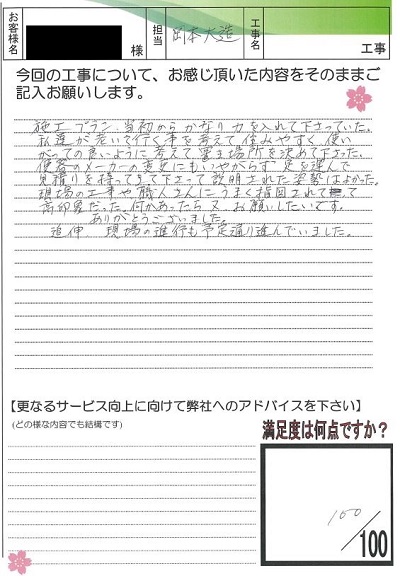 お客様名
様
担当
岡本大造
工事名
工事
今回の工事について、お感じ頂いた内容をそのままご
記入お願いします。
施工プラン、当初からかなり力を入れて下さっていた。
私達が老いて行く事を考えて住みやすく、使い
がっての良いように考えて置き場所を決めて下さった。
便器のメーカーの変更にもいやがらず足を運んで
見積りを持ってきて下さって説明された姿勢はよかった。
現場の工事や職人さんにうまく指図されて
高印象だった。何かあったら又、お願いしたいです。
ありがとうございました。
追伸 現場の進行も予定通り進んでいました。
【更なるサービス向上に向けて弊社へのアドバイスを下さい】
(どの様な内容でも結構です)
満足度は何点ですか？
100
/100